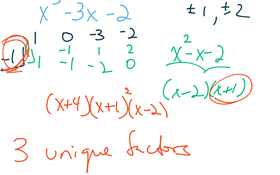 x³-3x-2 ±1, ±2
1 0 -3 -2
-1 ↓ -1 1 2
1 -1 -2 0
x²-x-2
(x-2)(x+1)
(x+4)(x+1)²(x-2)
3 unique factors